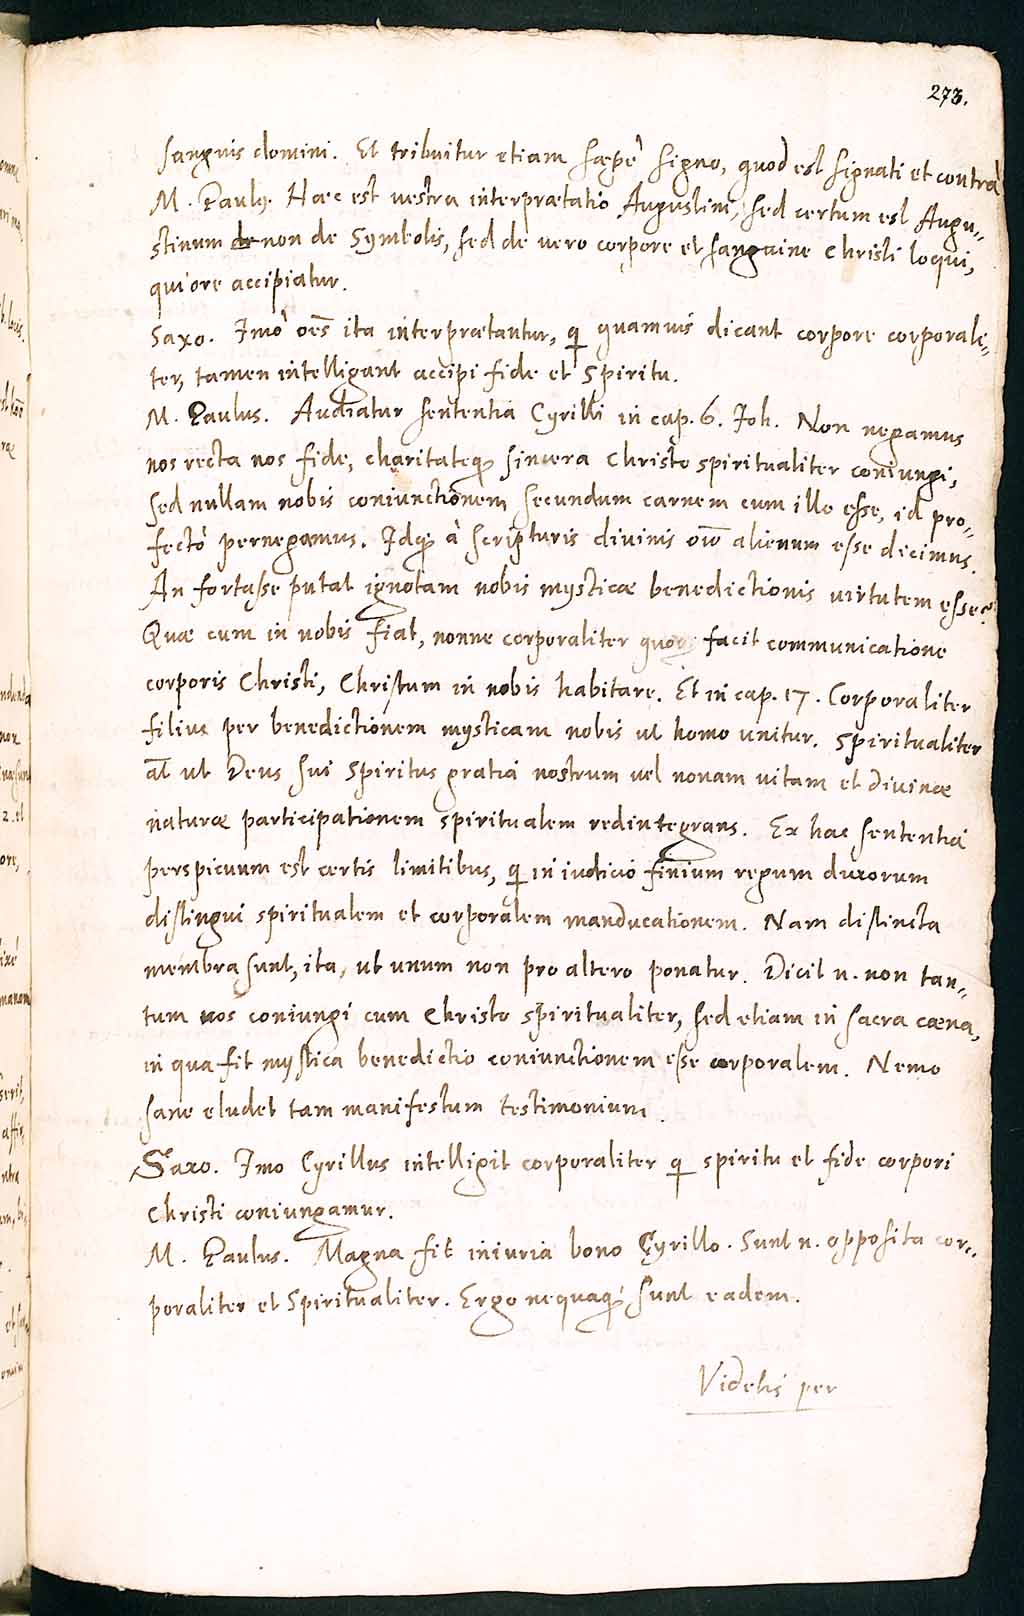 273.
sanguis domini. Et tribuitur etiam sæpè signo, quod est signati et contrà
M. Paulꝰ. Hæc est vestra interprætatio Augustini, sed certum est Augu-
stinum de non de Symbolis, sed de vero corpore et sanguine Christi loqui,
qui ore accipiatur.
Saxo. Imò oēs ita interprætantur, q quamuis dicant corpore corporali-
ter, tamen intelligant accipi fide et Spiritu.
M. Paulus. Audiatur sententia Cyrilli in cap. 6. Joh. Non negamus
nos recta nos fide, charitateq; sincera Christo spiritualiter coniungi,
sed nullam nobis coniunctionem secundum carnem cum illo esse, id pro-
fectò pernegamus. Idq; à scripturis divinis oīo alienum esse dicimus.
An fortasse putat ignotam nobis mysticæ benedictionis virtutem esse?
Quæ cum in nobis fiat, nonne corporaliter quoq; facit communicatione
corporis Christi, Christum in nobis habitare. Et in cap. 17. Corporaliter
filius per benedictionem mysticam nobis ut homo unitur. Spiritualiter
aūt ut Deus sui Spiritus gratia nostrum vel novam vitam et divinæ
naturæ participationem spiritualem redintegrans. Ex hac sententia
perspicuum est certis limitibus, q in iudicio finium regum duxorum
distingui spiritualem et corporalem manducationem. Nam distincta
membra sunt, ita, ut unum non pro altero ponatur. Dicit n. non tan-
tum nos coniungi cum Christo spiritualiter, sed etiam in sacra cæna,
in qua fit mystica benedictio coniunctionem esse corporalem. Nemo
sane eludet tam manifestum testimonium.
Saxo. Imo Cyrillus intelligit corporaliter q spiritu et fide corpori
Christi coniungamur.
M. Paulus. Magna fit iniuria bono Cyrillo. Sunt n. opposita cor-
poraliter et Spiritualiter. Ergo nequaq; sunt eadem.
Videtis per